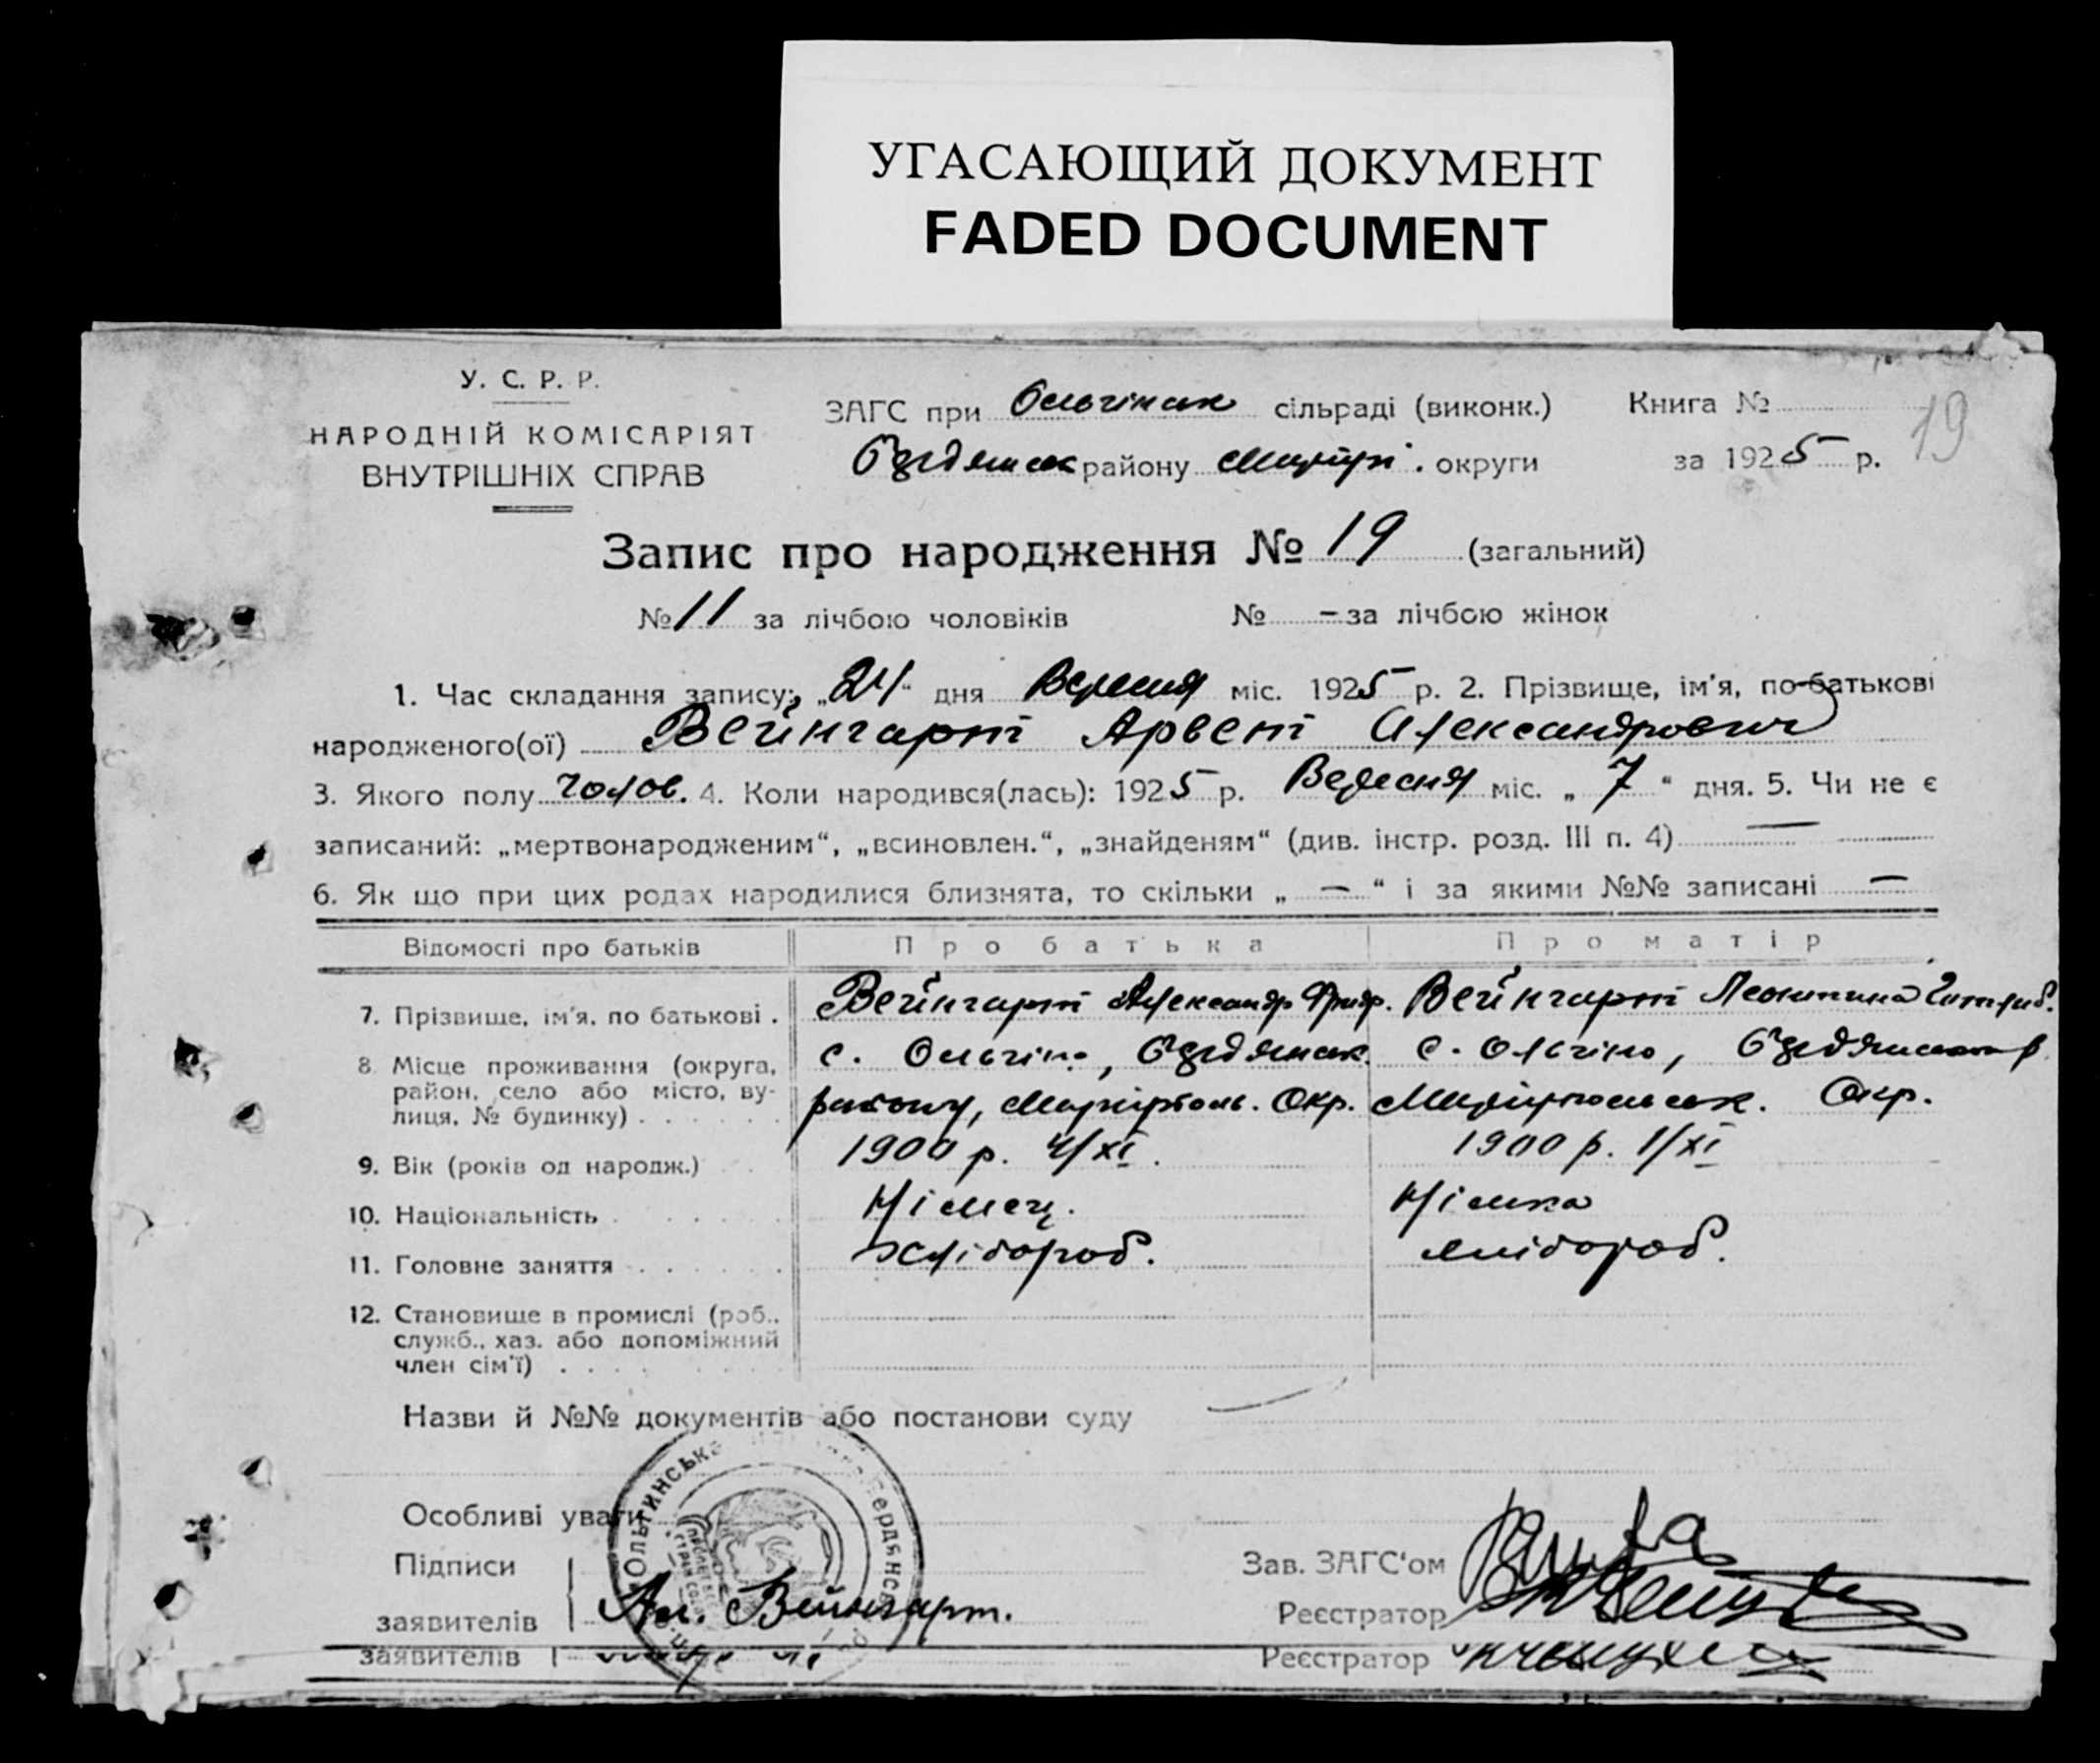 УГАСАЮЩИЙ ДОКУМЕНТ
FADED DOCUMENT
У. С. Р. Р.
НАРОДНІЙ КОМІСАРІЯТ
ВНУТРІШНІХ СПРАВ
ЗАГС при Ольгінськ сільраді (виконк.)
району Маріуп. округи
Книга №
за 1925 р.
19
Запис про народження № 19 (загальний)
№ 11 за лічбою чоловіків № — за лічбою жінок
1. Час складання запису: „24“ дня Вересня міс. 1925 р. 2. Прізвище, ім'я, по-батькові
народженого(ої) Вейнгарт Арвет Александрович
3. Якого полу чолов. 4. Коли народився(лась): 1925 р. Вересня міс. „7“ дня. 5. Чи не є
записаний: „мертвонародженим“, „всиновлен.“, „знайденям“ (див. інстр. розд. III п. 4) —
6. Як що при цих родах народилися близнята, то скільки „ — “ і за якими №№ записані —
Відомості про батьків Про батька Про матір
7. Прізвище, ім'я, по батькові . Вейнгарт Александр Фридр. Вейнгарт Леонтина Готлиб.
8. Місце проживання (округа, район, село або місто, вулиця, № будинку)
с. Ольгіно, с. Ольгіно,
району, Маріюполь. Окр. Маріюпольськ. Окр.
9. Вік (років од народж.) 1900 р. 4/XI. 1900 р. 1/XI
10. Національність Німец. Німка
11. Головне заняття Хлібороб. Хлібороб.
12. Становище в промислі (роб.,
служб., хаз. або допоміжний
член сім'ї)
Назви й №№ документів або постанови суду —
Особливі уваги
Ольгинська
Підписи
заявителів Ал. Вейнгарт.
Зав. ЗАГС'ом
Реєстратор
заявителів Реєстратор